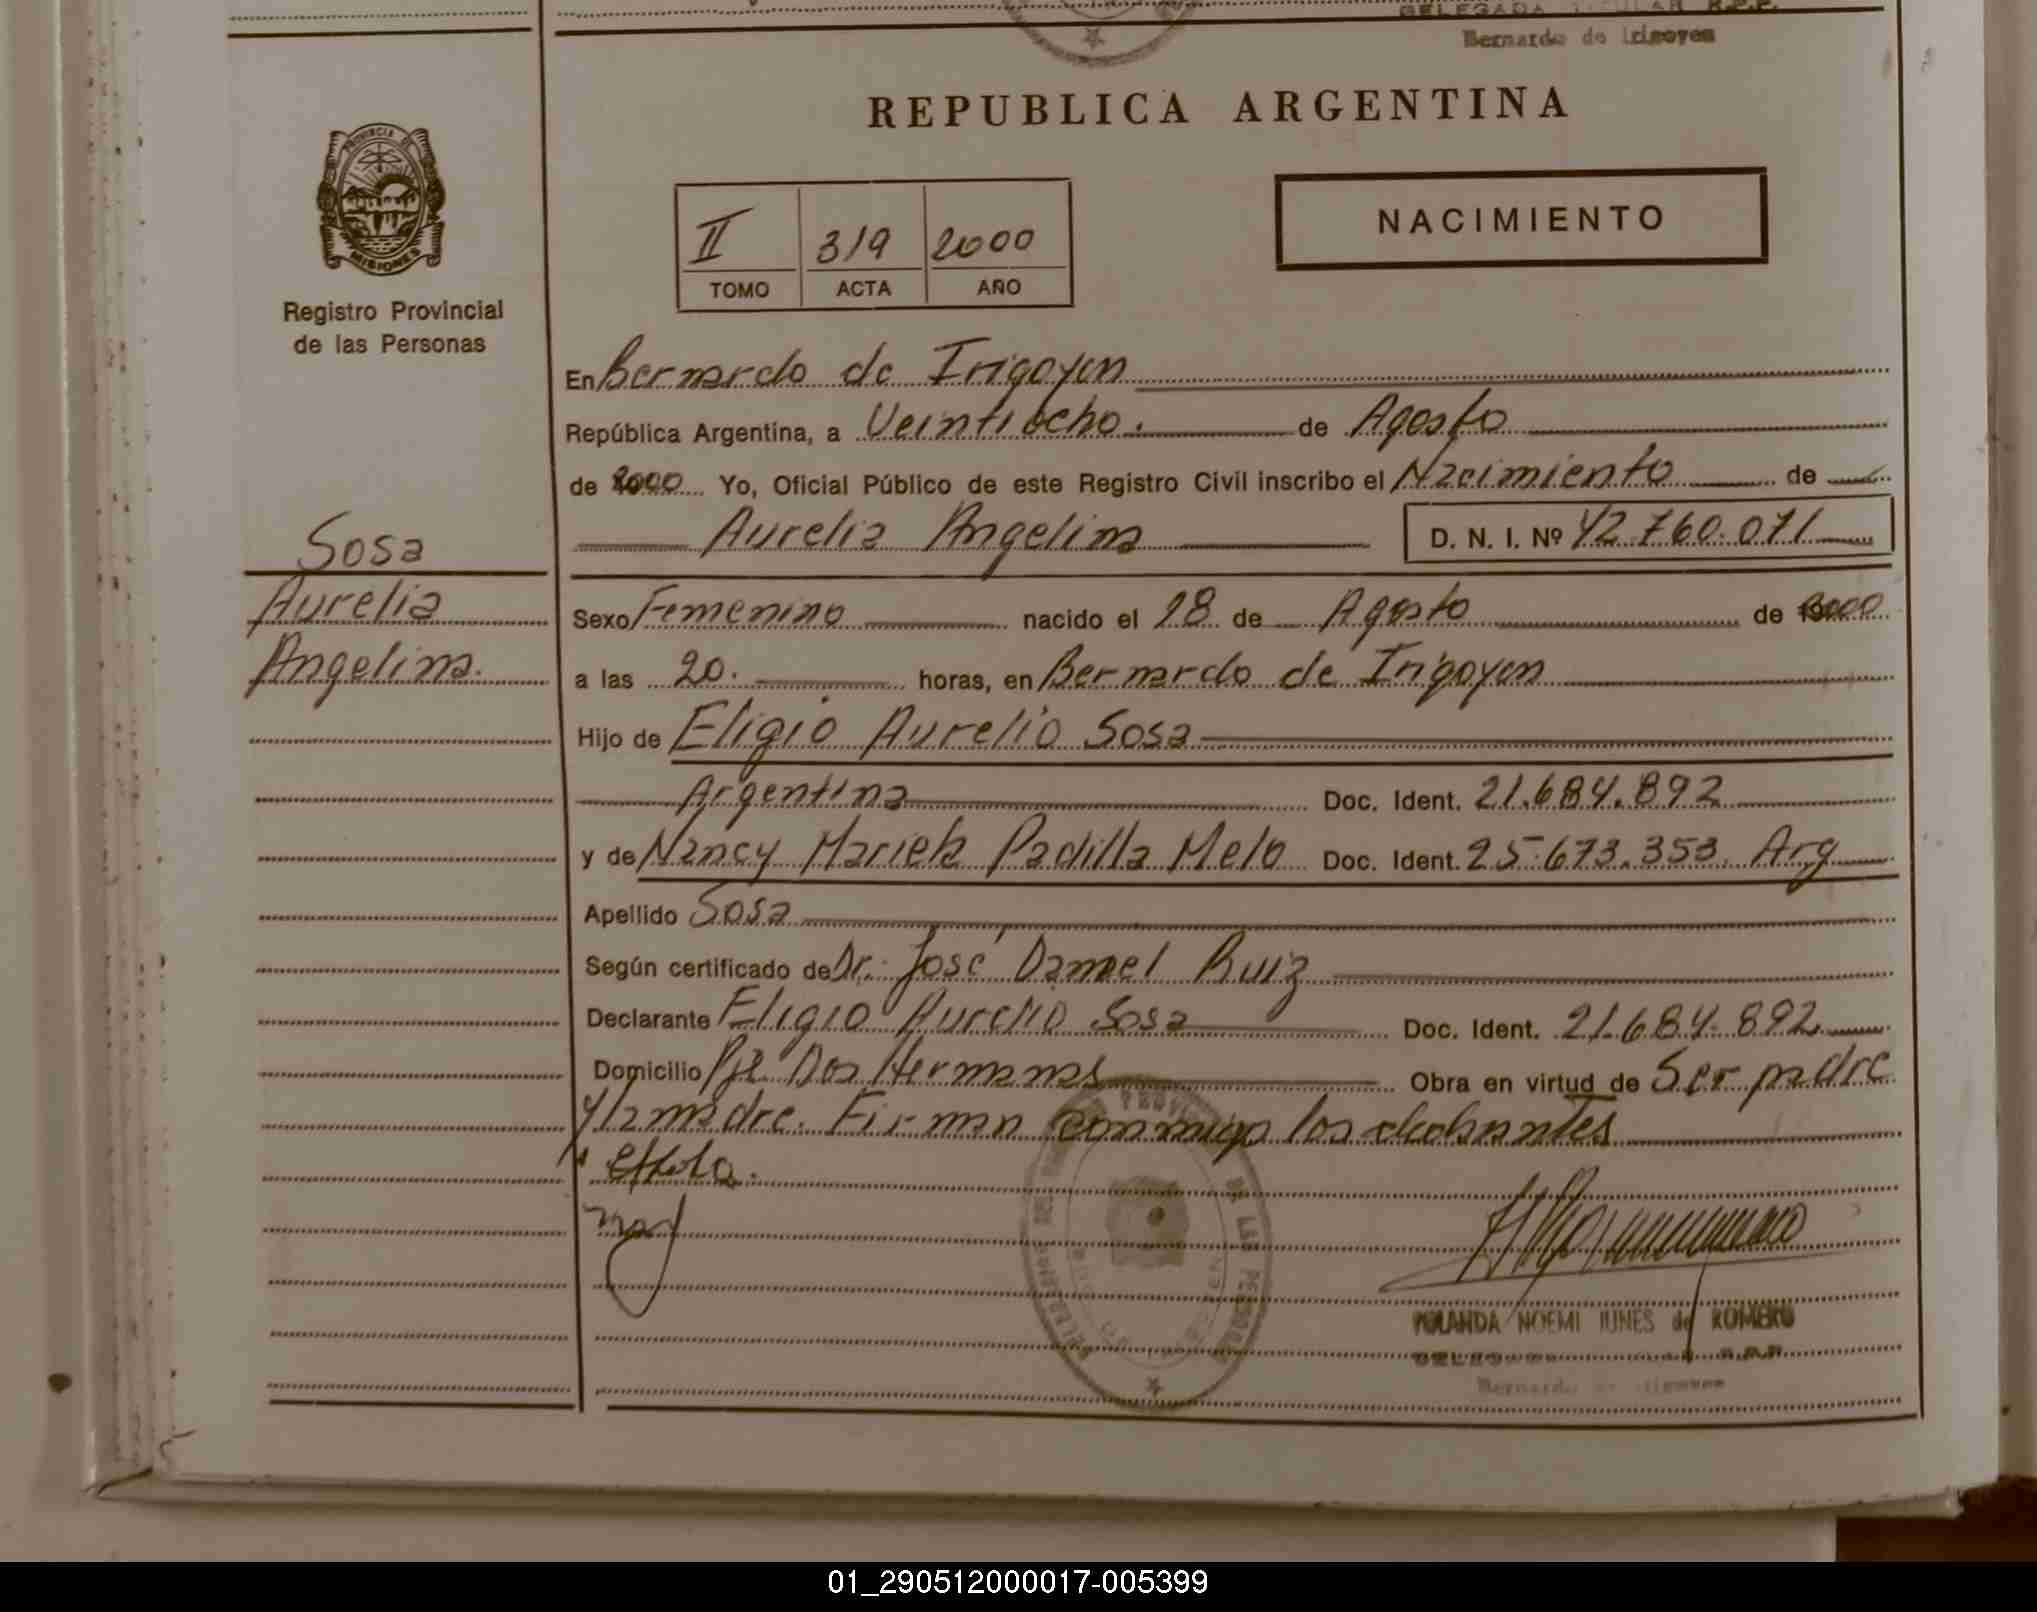 DELEGADA TITULAR R.P.P.
Bernardo de Irigoyen
REPUBLICA ARGENTINA
PROVINCIA DE
MISIONES
Registro Provincial
de las Personas
II 319 2000
TOMO ACTA AÑO
NACIMIENTO
En Bernardo de Irigoyen
República Argentina, a Veintiocho. de Agosto
de 2000 Yo, Oficial Público de este Registro Civil inscribo el Nacimiento de
Aurelia Angelina D. N. I. Nº 42.760.071
Sosa
Aurelia
Angelina.
Sexo Femenino nacido el 18 de Agosto de 2000
a las 20. horas, en Bernardo de Irigoyen
Hijo de Eligio Aurelio Sosa
Argentina Doc. Ident. 21.684.892
y de Nancy Mariela Padilla Melo Doc. Ident. 25.673.353. Arg
Apellido Sosa
Según certificado de Dr. José Daniel Ruiz
Declarante Eligio Aurelio Sosa Doc. Ident. 21.684.892
Domicilio Pje Dos Hermanas Obra en virtud de Ser padre
y la madre. Firman conmigo los declarantes
YOLANDA NOEMI IUNES de ROMERO
Bernardo de Irigoyen
01_290512000017-005399